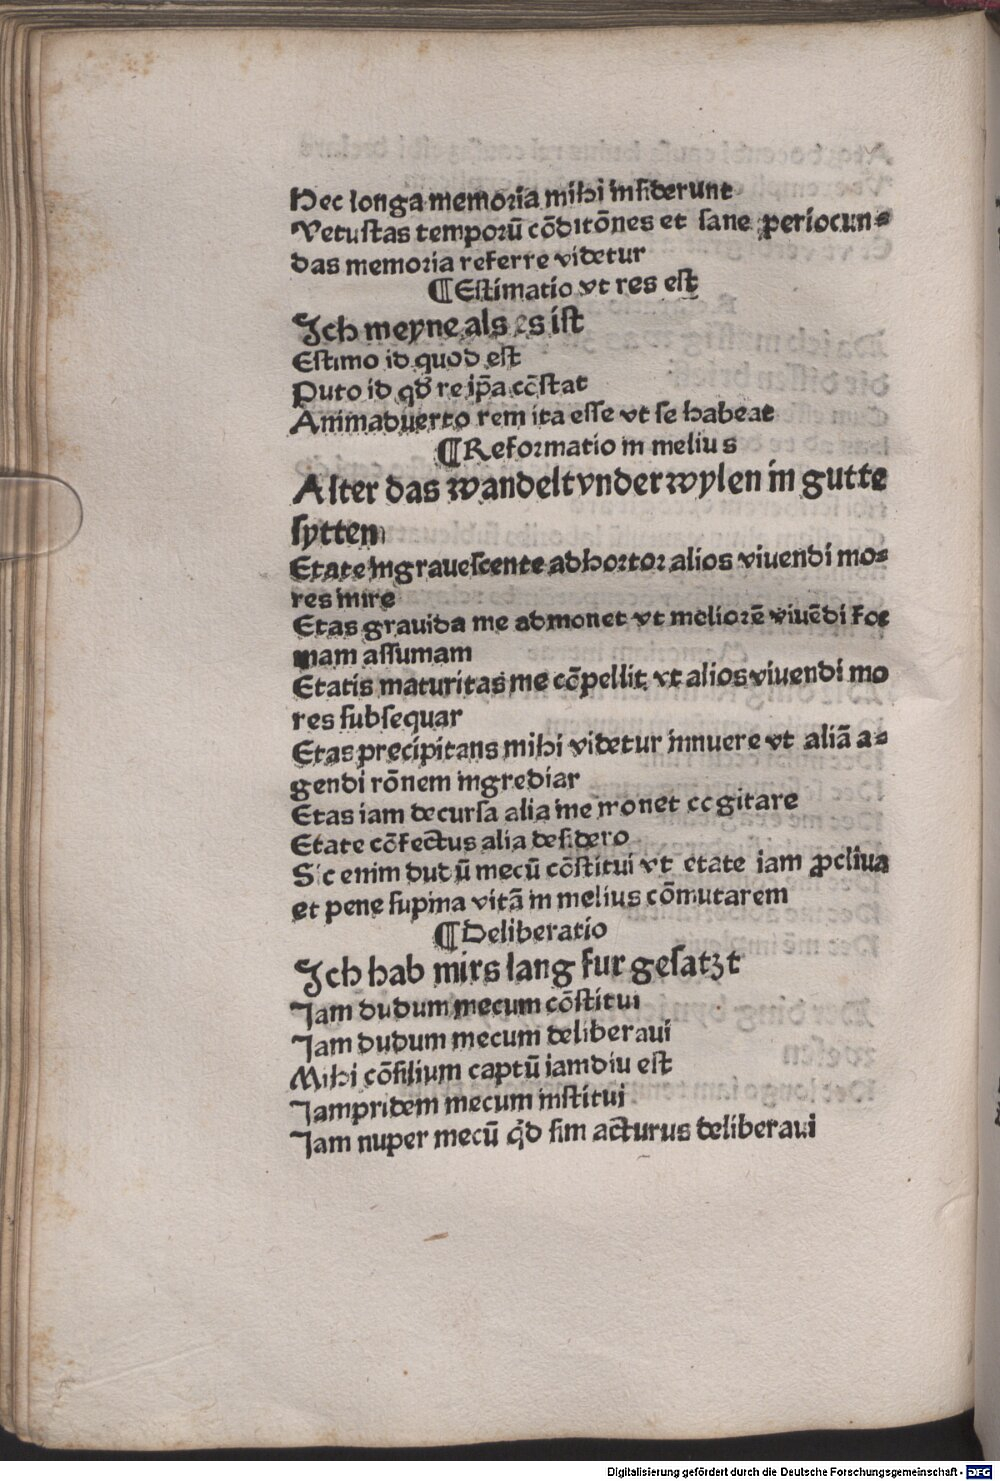 Hec longa memoria mihi insiderunt
Vetustas temporū cōditōnes et sane periocun-
das memoria referre videtur
¶Estimatio vt res est
Ich meyne als es ist
Estimo id quod est
Puto id qď re ip̄a cōstat
Animaduerto rem ita esse vt se habeat
¶Reformatio in melius
Alter das wandelt vnderwylen in gutte
sytten
Etate ingrauescente adhortor alios viuendi mo-
res inire
Etas grauida me admonet vt meliorē viuēdi for
mam assumam
Etatis maturitas me cōpellit vt alios viuendi mo
res subsequar
Etas precipitans mihi videtur innuere vt aliā a-
gendi rōnem ingrediar
Etas iam decursa alia me monet cogitare
Etate cōfectus alia desidero
Sic enim dudū mecū cōstitui vt etate iam ꝓcliua
et pene supina vitā in melius cōmutarem
¶Deliberatio
Ich hab mirs lang fur gesatzt
Jam dudum mecum cōstitui
Jam dudum mecum deliberaui
Mihi cōsilium captū iamdiu est
Jampridem mecum institui
Jam nuper mecū qd sim acturus deliberaui
Digitalisierung gefördert durch die Deutsche Forschungsgemeinschaft - DFG